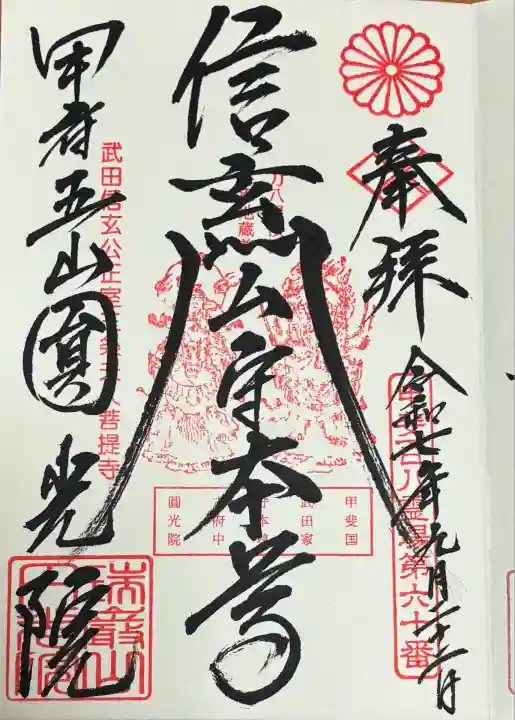 奉拝
令和七年九月二十二日
甲斐百八霊場第六十番
信玄公守本尊
甲斐国
武田家
府中
圓光院
甲府五山圓光院
武田信玄公正室三条夫人菩提寺
瑞巌山